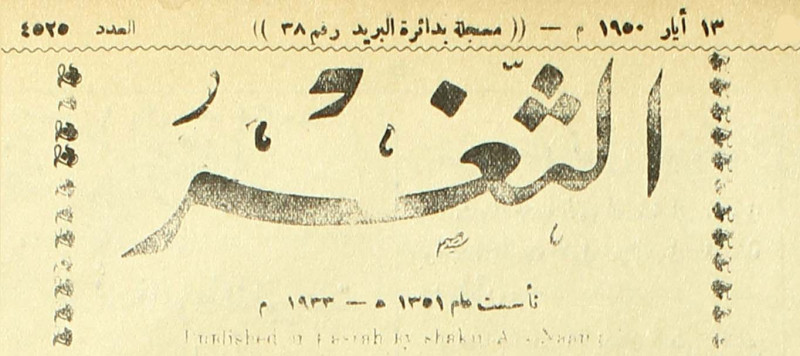 ١٣ أيار ١٩٥٠ م — (( مسجلة بدائرة البريد رقم ٣٨ )) العدد ٤٥٢٥
الثغر
تأسست عام ١٣٥١ ه — ١٩٣٣ م
Published in Basrah by Shakir